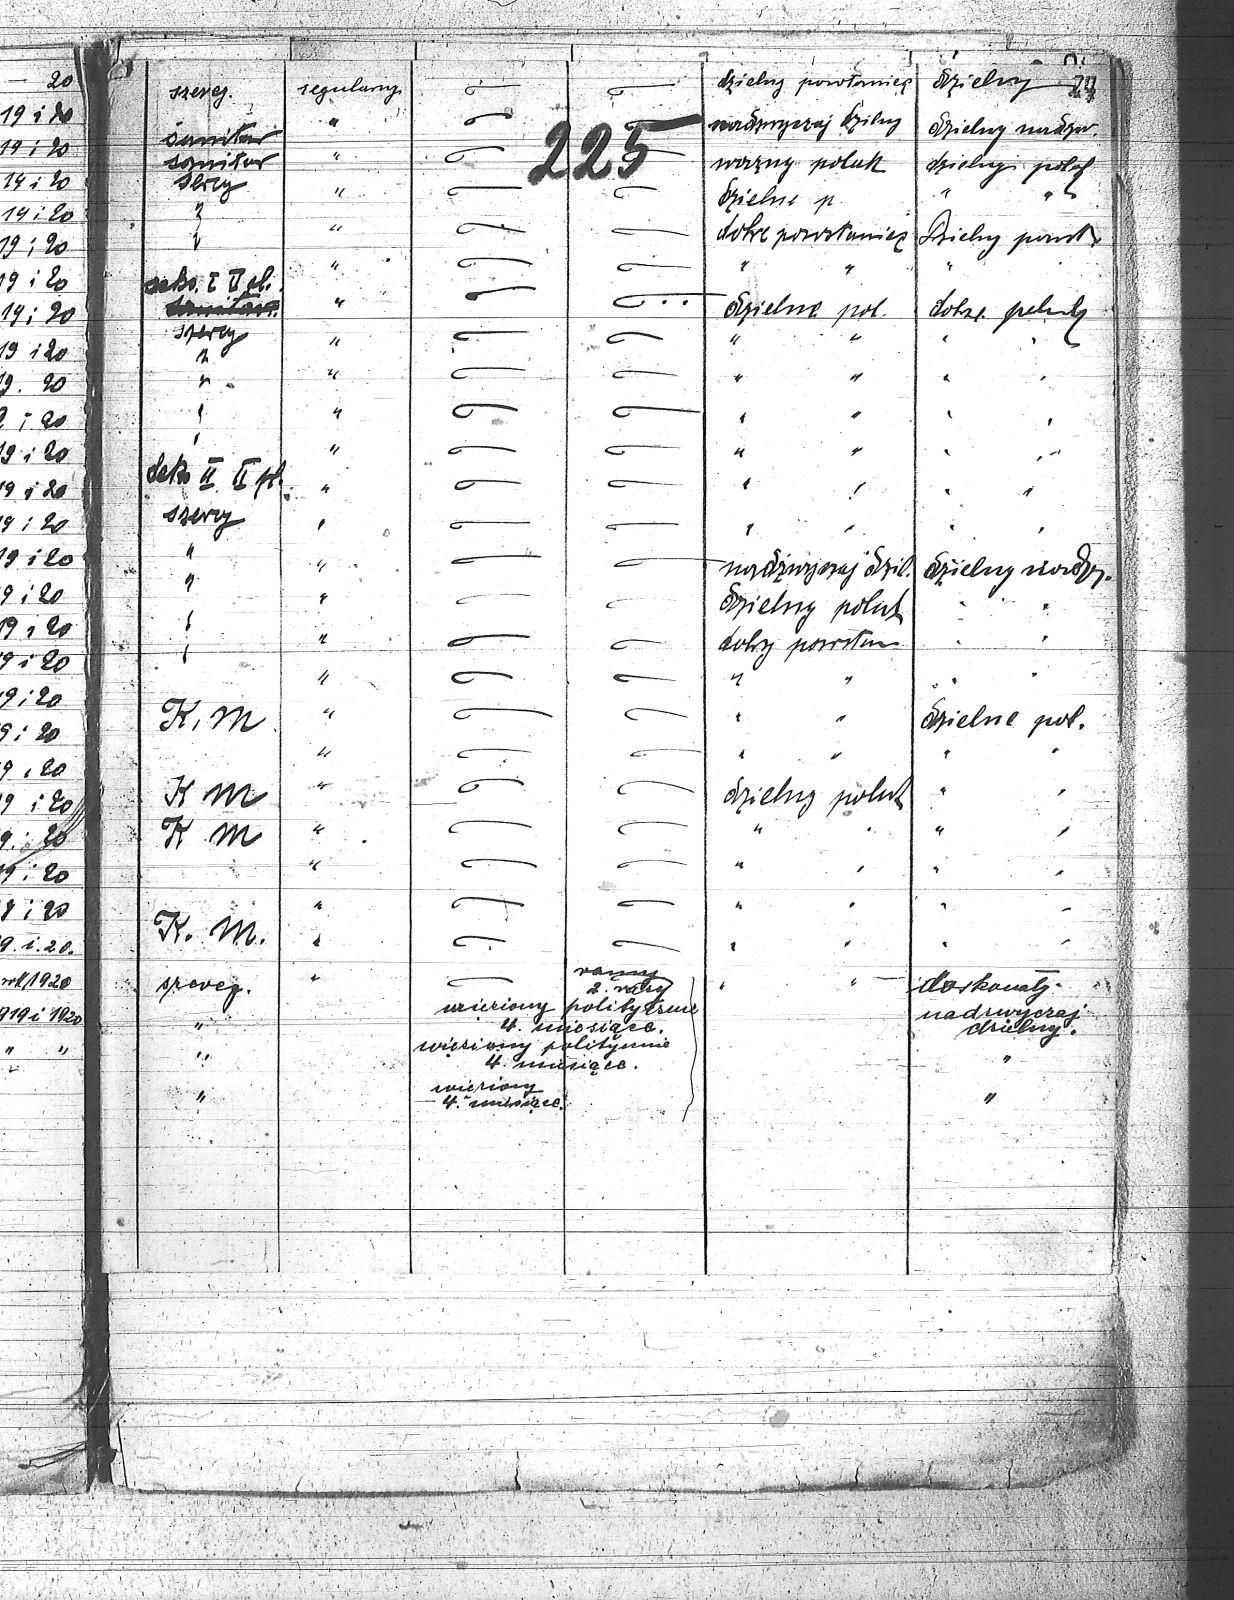 20 szereg. regularny dzielny powstaniec dzielny 24
19 i 20 sanitar " nadzwyczaj dzielny dzielny nadzw.
225
19 i 20 sanitar " ważny polak dzielny polak
19 i 20 szereg " dzielne p. " "
19 i 20 " dobre powstaniec Dzielny powst.
19 i 20 " " " "
19 i 20 seks. I II pl.
19 i 20 szereg " dzielne pol. dobre
19 i 20 " " " " " "
19. 20 " " " " " "
i 20 " " " " " "
19 i 20 " " " " " "
19 i 20 seks II II pl. " " " " "
19 i 20 szereg " " " " "
19 i 20 " " nadzwyczaj dziel. dzielny nadzw.
9 i 20 " " dzielny polak " "
19 i 20 " " dobry powstan " "
9 i 20 " " " " " "
9 i 20 K. M " " " dzielne pol.
9 i 20 " " " " "
9 i 20 K M " dzielny polak " "
9 i 20 K M " " " " "
9 i 20 " " " " "
9 i 20 " " " " "
9. i. 20. K. M. " " " " "
1920 szereg. " ranny " " doskonały.
2. razy
1919 i 1920 " więziony politycznie nadzwyczaj
4. miesiące. dzielny.
" " " więziony politycznie "
4. miesiące.
" więziony "
4. miesiące.